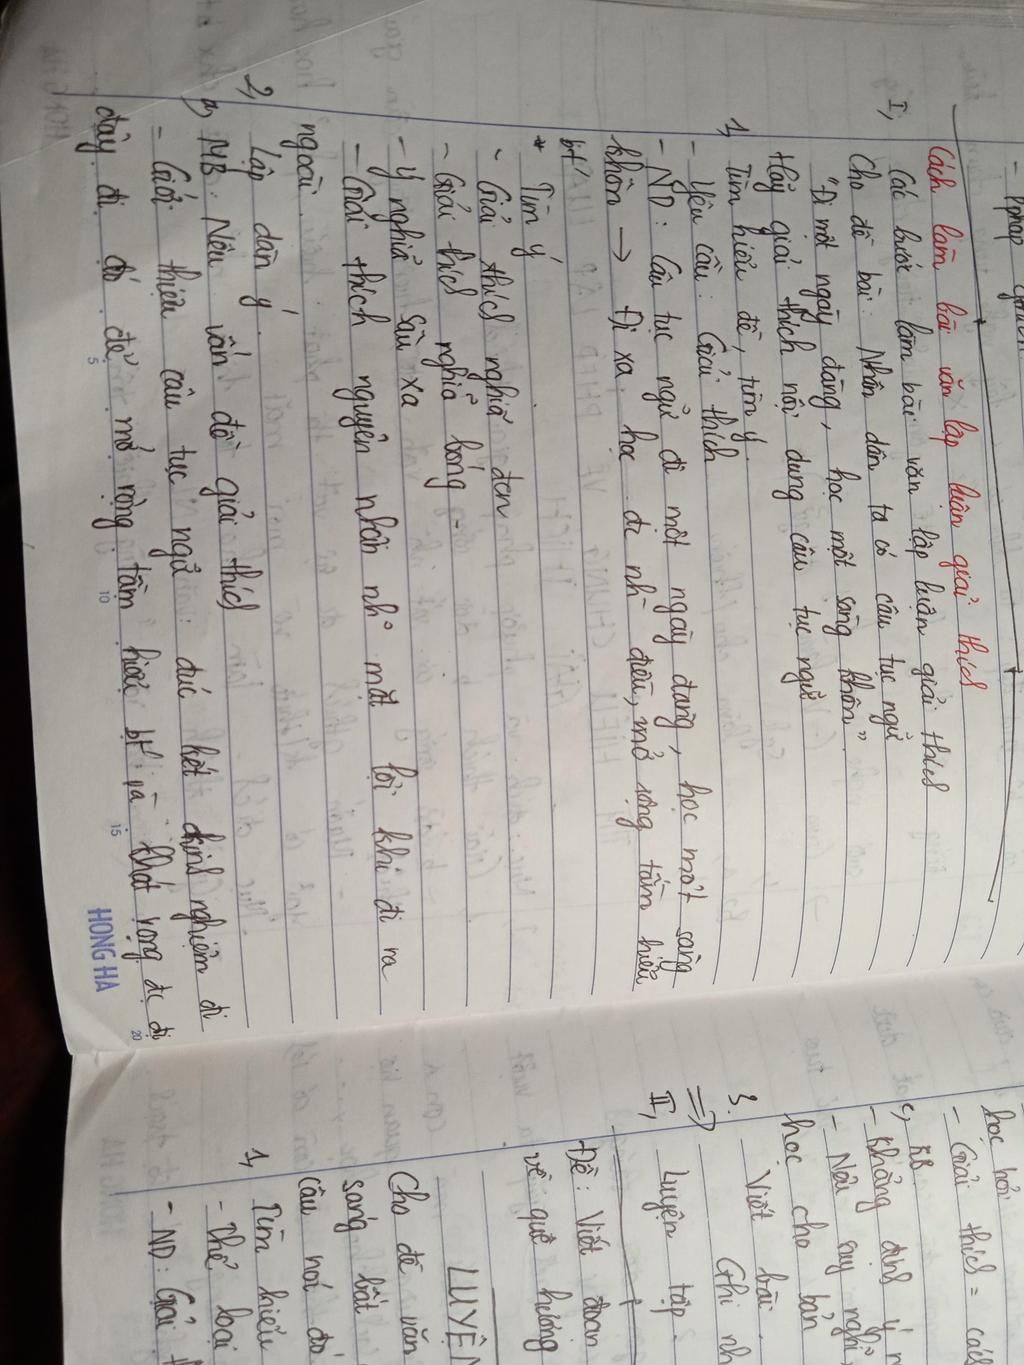 - P.pháp
Cách làm bài văn lập luận giải thích
I, Các bước làm bài văn lập luận giải thích
Cho đề bài: Nhân dân ta có câu tục ngữ
"Đi một ngày đàng, học một sàng khôn"
Hãy giải thích nội dung câu tục ngữ
1, Tìm hiểu đề, tìm ý
- Yêu cầu: Giải thích
- ND: Câu tục ngữ đi một ngày đàng, học một sàng
khôn → Đi xa, học đc nh điều, mở rộng tầm hiểu
bt
* Tìm ý
- Giải thích nghĩa đen
- Giải thích nghĩa bóng
- Ý nghĩa sâu xa
- Giải thích nguyên nhân
ngoài.
2, Lập dàn ý.
a, MB: Nêu vấn đề giải thích
- Giới thiệu câu tục ngữ: đúc kết kinh nghiệm đi
đây đi đó để mở rộng tầm hiểu bt và
5 10 15 20
HONG HA
học hỏi
- Giải thích = cách
c, KB
- Khẳng định ý n
- Nêu suy nghĩ
học cho bản
3. Viết bài.
=> Ghi nh
II, Luyện tập.
Đề: Viết đoạn
về quê hương
LUYỆN
Cho đề văn
sáng bất
câu nói đó
1, Tìm hiểu
- Thể loại
- ND: Giải t